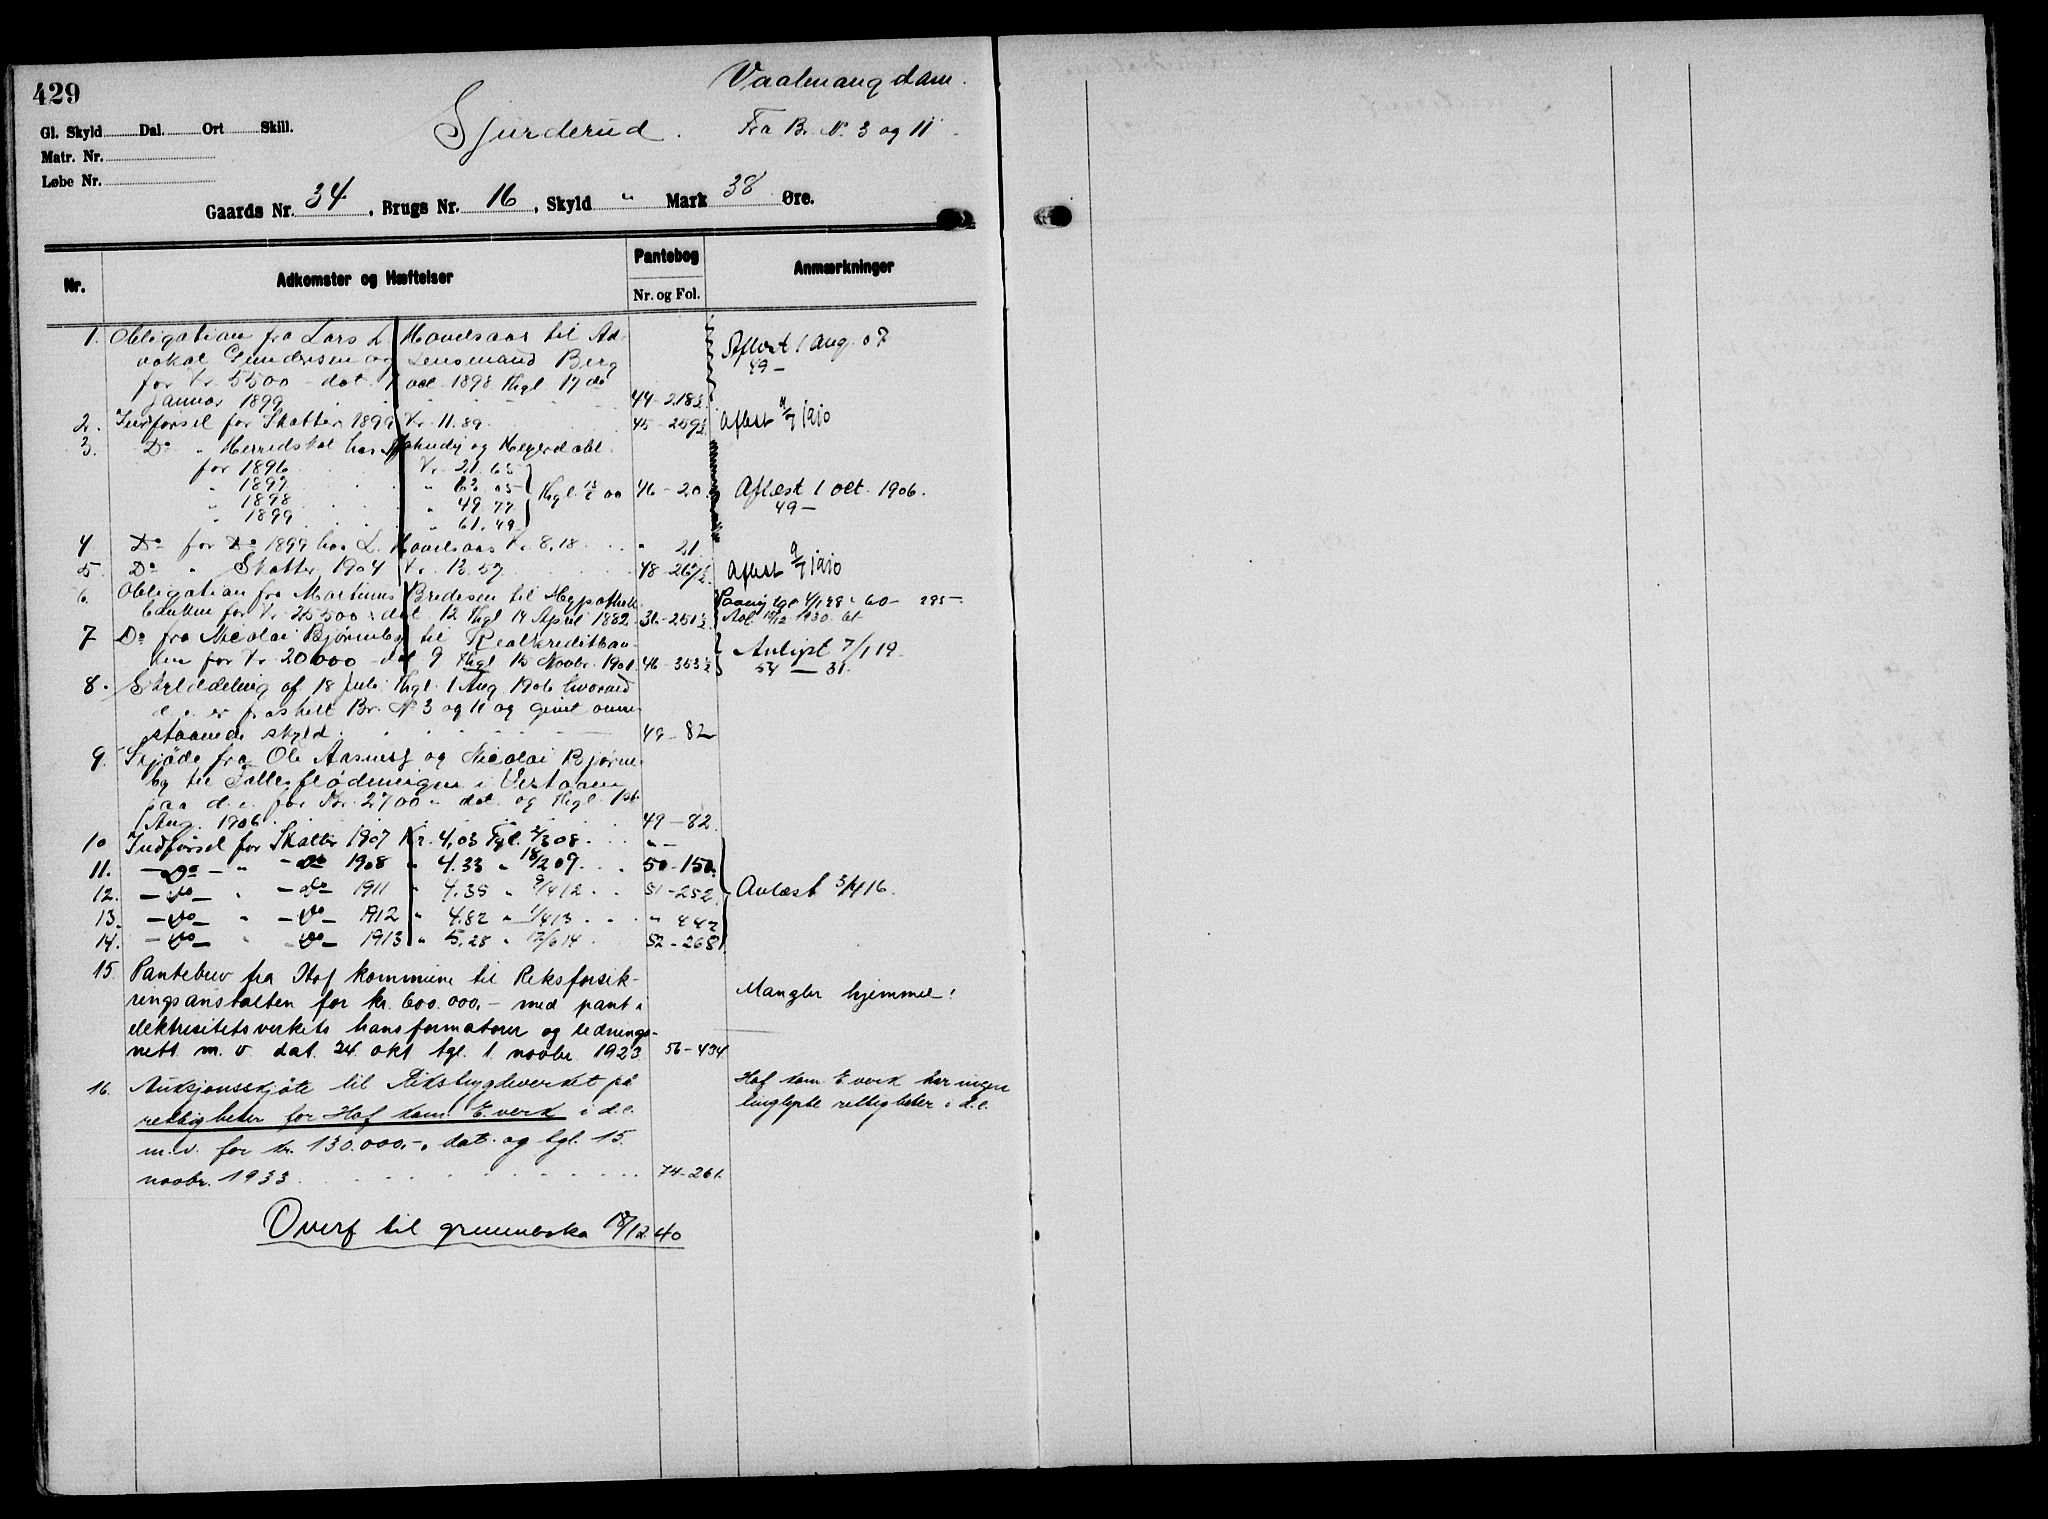 429
Vaalmang dam.
Gl. Skyld Dal. Ort Skill.
Sjurderud.
Fra Br. N. 3 og 11.
Matr. Nr.
Løbe Nr.
Gaards Nr. 34, Brugs Nr. 16, Skyld " Mark 38 Øre.
Nr. Adkomster og Hæftelser Pantebog Nr. og Fol. Anmærkninger
1. Obligation fra Lars L. Hovelsaas til Ad-
vokat Gundersen og Lensmand Berg
for Kr. 5500 - dat. 7 oct. 1898 thgl 17 de
Januar 1899 44-218½ Aflæst 1 Aug. 07
49-
2. Indførsel for Skatter 1899 Kr. 11.89 45-259½ Aflæst 9/7 1910
3. Do " Herredskat hos og Heyerdahl
for 1896 Kr. 21.65
" 1897 " 63.05 thgl. 00 46-20 Aflæst 1 oct. 1906.
" 1898 " 49.77 49-
" 1899 " 61.49
4 Do for Do 1899 hos L. Hovelsaas Kr. 8.18 " 21
5. Do " Skatter 1904 Kr. 12.57 48-267½ Aflæst 9/7 1910
6. Obligation fra Martinus Bredesen til Hypothek-
banken for Kr. 25500 dat 12 thgl 14 April 1882 31-251½
7 Do fra Nicolai Bjørneby til Realkreditban-
ken for Kr. 20000 - dat 9 thgl 15 Novbr. 1901 46-353½ Avlyst 7/1 19.
54 - 31.
8. Skylddeling af 18 Juli thgl. 1 Aug. 1906 hvorved
d. e. er fraskilt Br. No 3 og 11 og givet oven-
staaende skyld. 49-82
9. Skjøde fra Ole Aasnes og Nicolai Bjørne-
by til Fællesflødningen i
paa d. e. for Kr. 2700 - dat. og thgl. 1st
Aug. 1906. 49-82.
10 Indførsel for Skatter 1907 Kr. 4,03 Tgl. 2/3 08 " -
11. - Do - " - Do 1908 " 4.33 " 18/2 09. 50-150.
12. - Do - - Do 1911 " 4.35 " 9/4 12 51-252. Avlæst 3/4 16.
13. - Do - " - Do - 1912 " 4.82 " 1/4 13 " 447
14. - Do - " - Do - 1913 " 5,28 " 12/6 14. 52-268.
15. Pantebrev fra Hof kommune til Riksforsik-
ringsanstalten for kr. 600.000.- med pant i
elektrisitetsverkets transformatorer og lednings-
nett m. v. dat. 24 okt tgl. 1. novbr. 1923. 56-434
Mangler hjemmel!
16. Auksjonsskjøte til Riksbygdeverket på
rettigheter for Hof kom. E.verk i d.e.
m.v. for kr. 130.000.-, dat. og tgl. 15.
novbr. 1933 74-261.
Hof kom. E verk har ingen
tinglyste rettigheter i d.e.
Overf til grunnboka 18/12 40